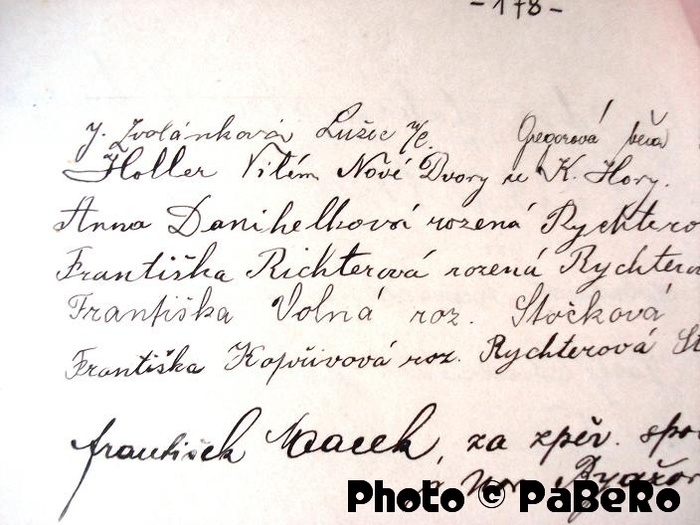 - 178 -
J. Zvolánková Lužec n/C. Gregorová
Holler Vilém Nové Dvory u K. Hory.
Anna Danihelková rozená Rychtero
Františka Richterová rozená Rychtero
Františka Volná roz. Stočková
Františka Kopřivová roz. Rychterová St
František Macek, za zpěv. spo
Photo © PaBeRo